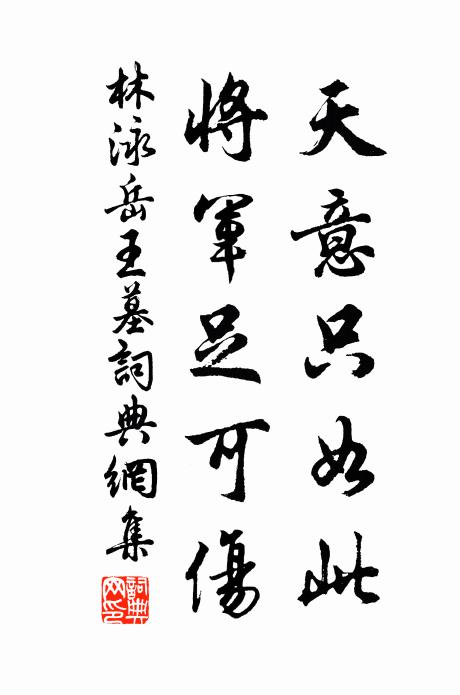 天意只如此
將軍足可傷
林泳岳王墓詞典網集
詞典
网印